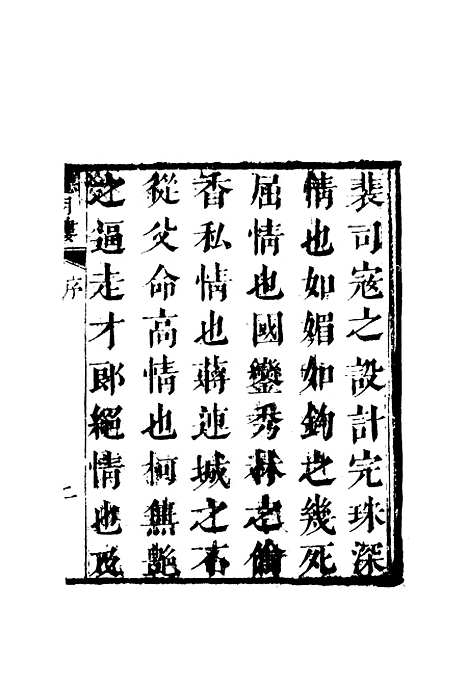 裴司寇之設計完珠深
情也如媚如鉤之幾死
屈情也國鑾秀林之偷
香私情也蔣連城之不
從父命高情也柯無艷
之逼走才郎絕情也及
月樓
序
二